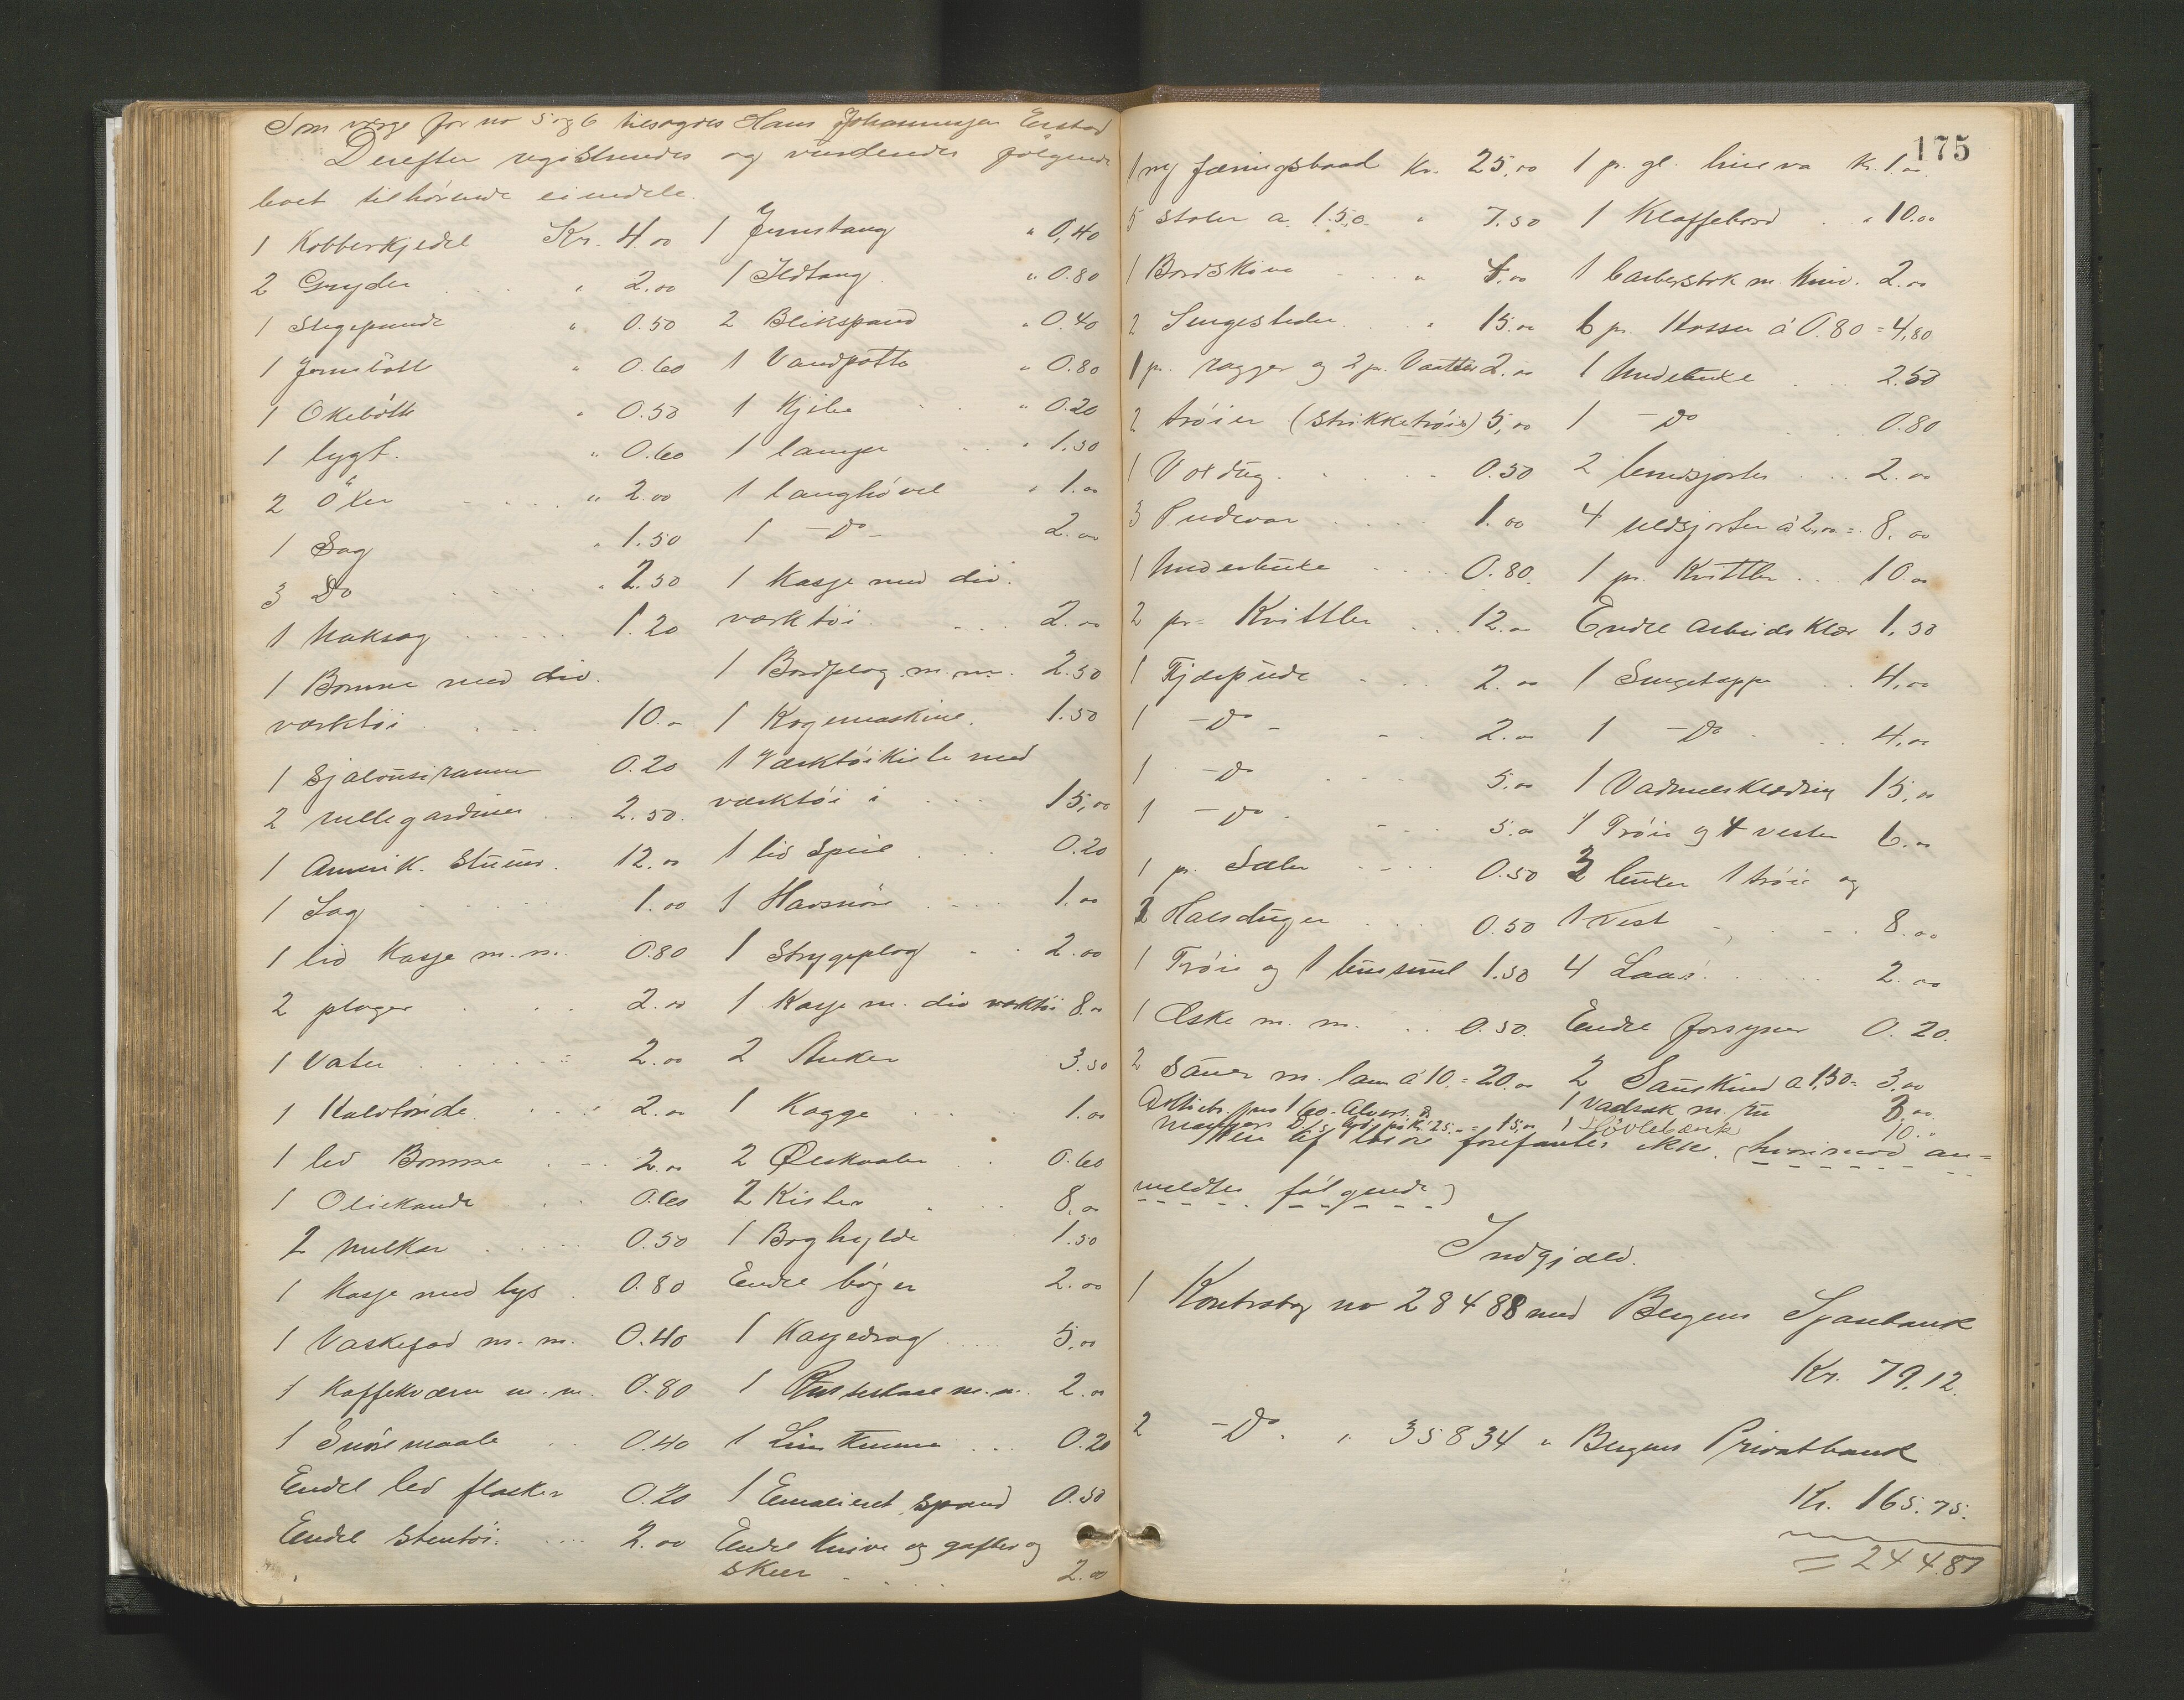 Som værge for no 5 og 6 tilsagdes Hans Johannesen Erstad
Derefter registreredes og vurderedes følgende
boet tilhørende eiendele.
1 Kobberkjedel Kr. 4.00
2 Gryder " 2.00
1 Stegepande " 0.50
1 Jernbøtte " 0.60
1 Økebøtte " 0.50
1 lygt. " 0.60
2 Öxer " 2.00
1 Sag " 1.50
3 Do " 2.50
1 haksag 1.20
1 Bomme med div.
værktöi 10.00
1 Sjalousiramme 0.20
2 rullegardiner 2.50
1 Amerik. Stueur 12.00
1 Sag 1.00
1 lid Kasse m.m. 0.80
2 plager 2.00
1 Vater 2.00
1 Kaldtönde 2.00
1 led Bomme 2.00
1 Oliekande 0.60
2 melkar 0.50
1 Kasse med lys 0.80
1 Vaskefad m.m. 0.40
1 Kaffekværn m.m. 0.80
1 Snöremaale 0.40
Endel led flasker 0.20
Endel Stentöi 2.00
1 Jernstang " 0,40
1 Ildtang " 0.80
2 Blikspand " 0.40
1 Vandpotte " 0.80
1 Kjele " 0.20
1 lampe " 1.50
1 langhövel " 1.00
1 -Do- 2.00
1 Kasse med div.
værktöi 2.00
1 Bordplag m.m. 2.50
1 Kogemaskine 1.50
1 Værktöikiste med
værktöi i 15,00
1 lid Speil 0.20
1 Havsnöre 1.00
1 Strygeplag 2.00
1 Kasse m. div værktöi 8.00
2 Anker 3.50
1 Kagge 1.00
2 Ölskaaler 0.60
2 Kister 8.00
1 Boghylde 1.50
Endel böger 2.00
1 Kassedrag 5.00
1 m.m. 2.00
1 Lim Kumme 0.20
1 Emalieret spand 0.50
Endel Knive og gafler og
skeer 2.00
175
1 ny færingsbaad Kr. 25,00
5 Stoler a 1.50 " 7.50
1 Bordskive " 4.00
2 Sengesteder " 15.00
1 pr. ragger og 2 pr. Vanter 2.00
2 tröier (Strikketröie) 5,00
1 Voxdug 0.50
3 Pudevar 1.00
1 Underbuxe 0.80
2 pr. Kvittler 12.00
1 Fjærpude 2.00
1 -Do- 2.00
1 -Do 5.00
1 -Do- 5.00
1 pr. Seler 0.50
2 Halsduger 0.50
1 Tröie og 1 1.50
1 Æske m.m. 0.50
2 Sauer m. lam á 10. = 20.00
1 p. gl. Kr. 1.00
1 Klaffebord " 10.00
1 barberstok m. Kniv. 2.00
6 pr. Hosser á 0.80 = 4,80
1 Underbuxe 2.50
1 -Do 0.80
2 lerredsjorter 2.00
4 uldsjorter á 2,00 = 8.00
1 pr. Kvittler 10.00
Endel arbeids Klær 1.50
1 Sengetæppe 4,00
1 -Do- 4.00
1 Vadmelsklædning 15.00
1 Tröie og 4 vester 6.00
3 buxer 1 tröie og
1 Vest 8.00
4 Laas 2.00
Endel forsyner 0.20.
2 Saueskind a 1,50 = 3,00
1 vadsæk m. 3,00
1 Hövlebænk 10.00
Mere af lösöre forefantes ikke, (hvorimod an-
meldtes fölgende)
Indgjæld.
1 Kontrabog no 28488 med Bergens Sparebank
Kr. 79.12.
2 -Do- " 35834 " Bergens Privatbank
Kr. 165.75.
= 244.87